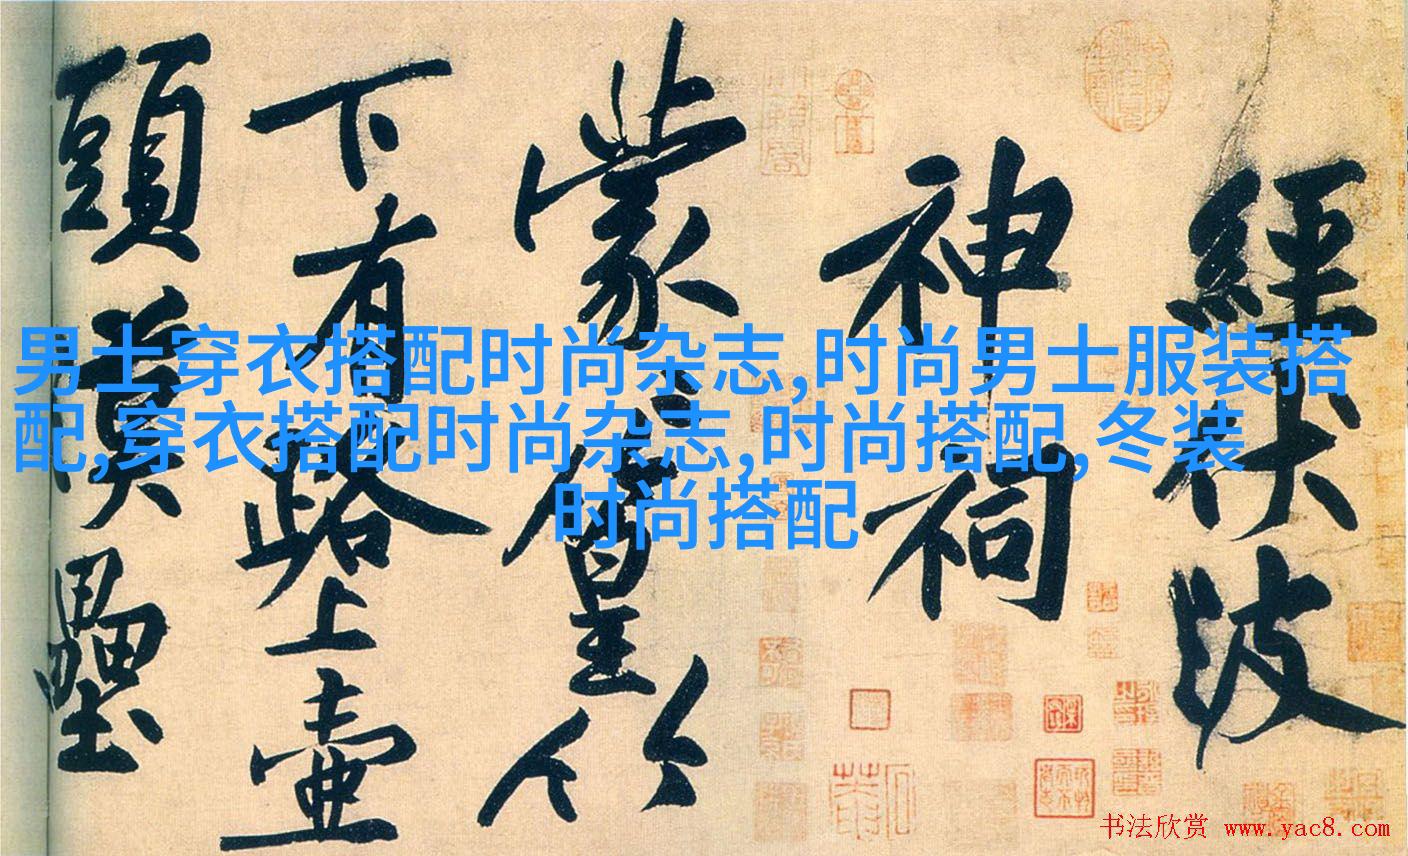 經伏波
神祠
蒙〻篁竹
下有路上壺
頭漢壘
男士穿衣搭配时尚杂志,时尚男士服装搭
配,穿衣搭配时尚杂志,时尚搭配,冬装
时尚搭配
书法欣赏 www.yac8.com